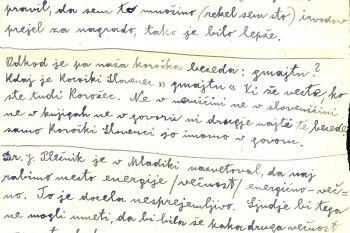 pravil, da sem to množino (rekel sem sto) izvodov
prejel za nagrado, tako je bilo lepše.
Odkod je pa naša koroška beseda: gmajtn?
Kdaj je Koroški Slovenec "gmajtn" Vi že veste, ko
ste tudi Korošec. Ne v nemščini ne v slovenščini
ne v knjigah ne v govoru ni drugje najti te besede
samo Koroški Slovenci jo imamo v govoru.
Dr. J. Plečnik je v Mladiki nasvetoval, da naj
rabimo mesto energije /večnost/ energično = več-
no. To je docela nesprejemljivo. Ljudje bi tega
ne mogli umeti, da bi bila še pa druga večnost